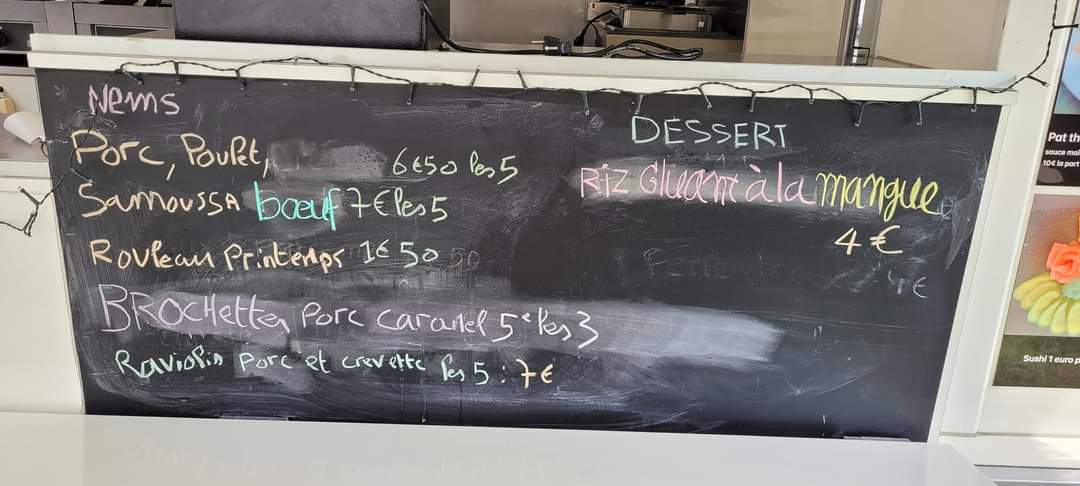 Nems
Porc, Poulet, 6€50 les 5
Samoussa boeuf 7€ les 5
Rouleau Printemps 1€50
BROCHettes Porc caramel 5€ les 3
Raviolis Porc et crevette les 5 : 7€
DESSERT
Riz Gluant à la mangue
4 €
Pat th
sauce mai
10€ la part
Sushi 1 euro p